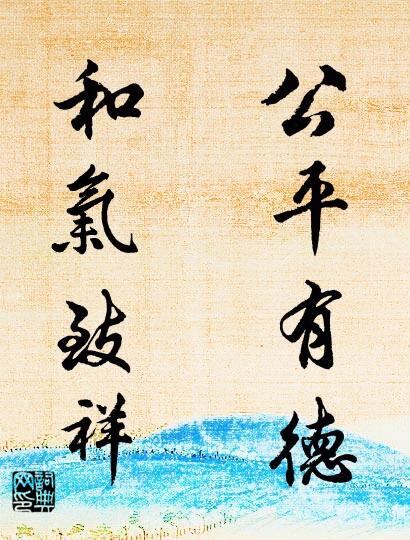 公平有德
和氣致祥
詞典網